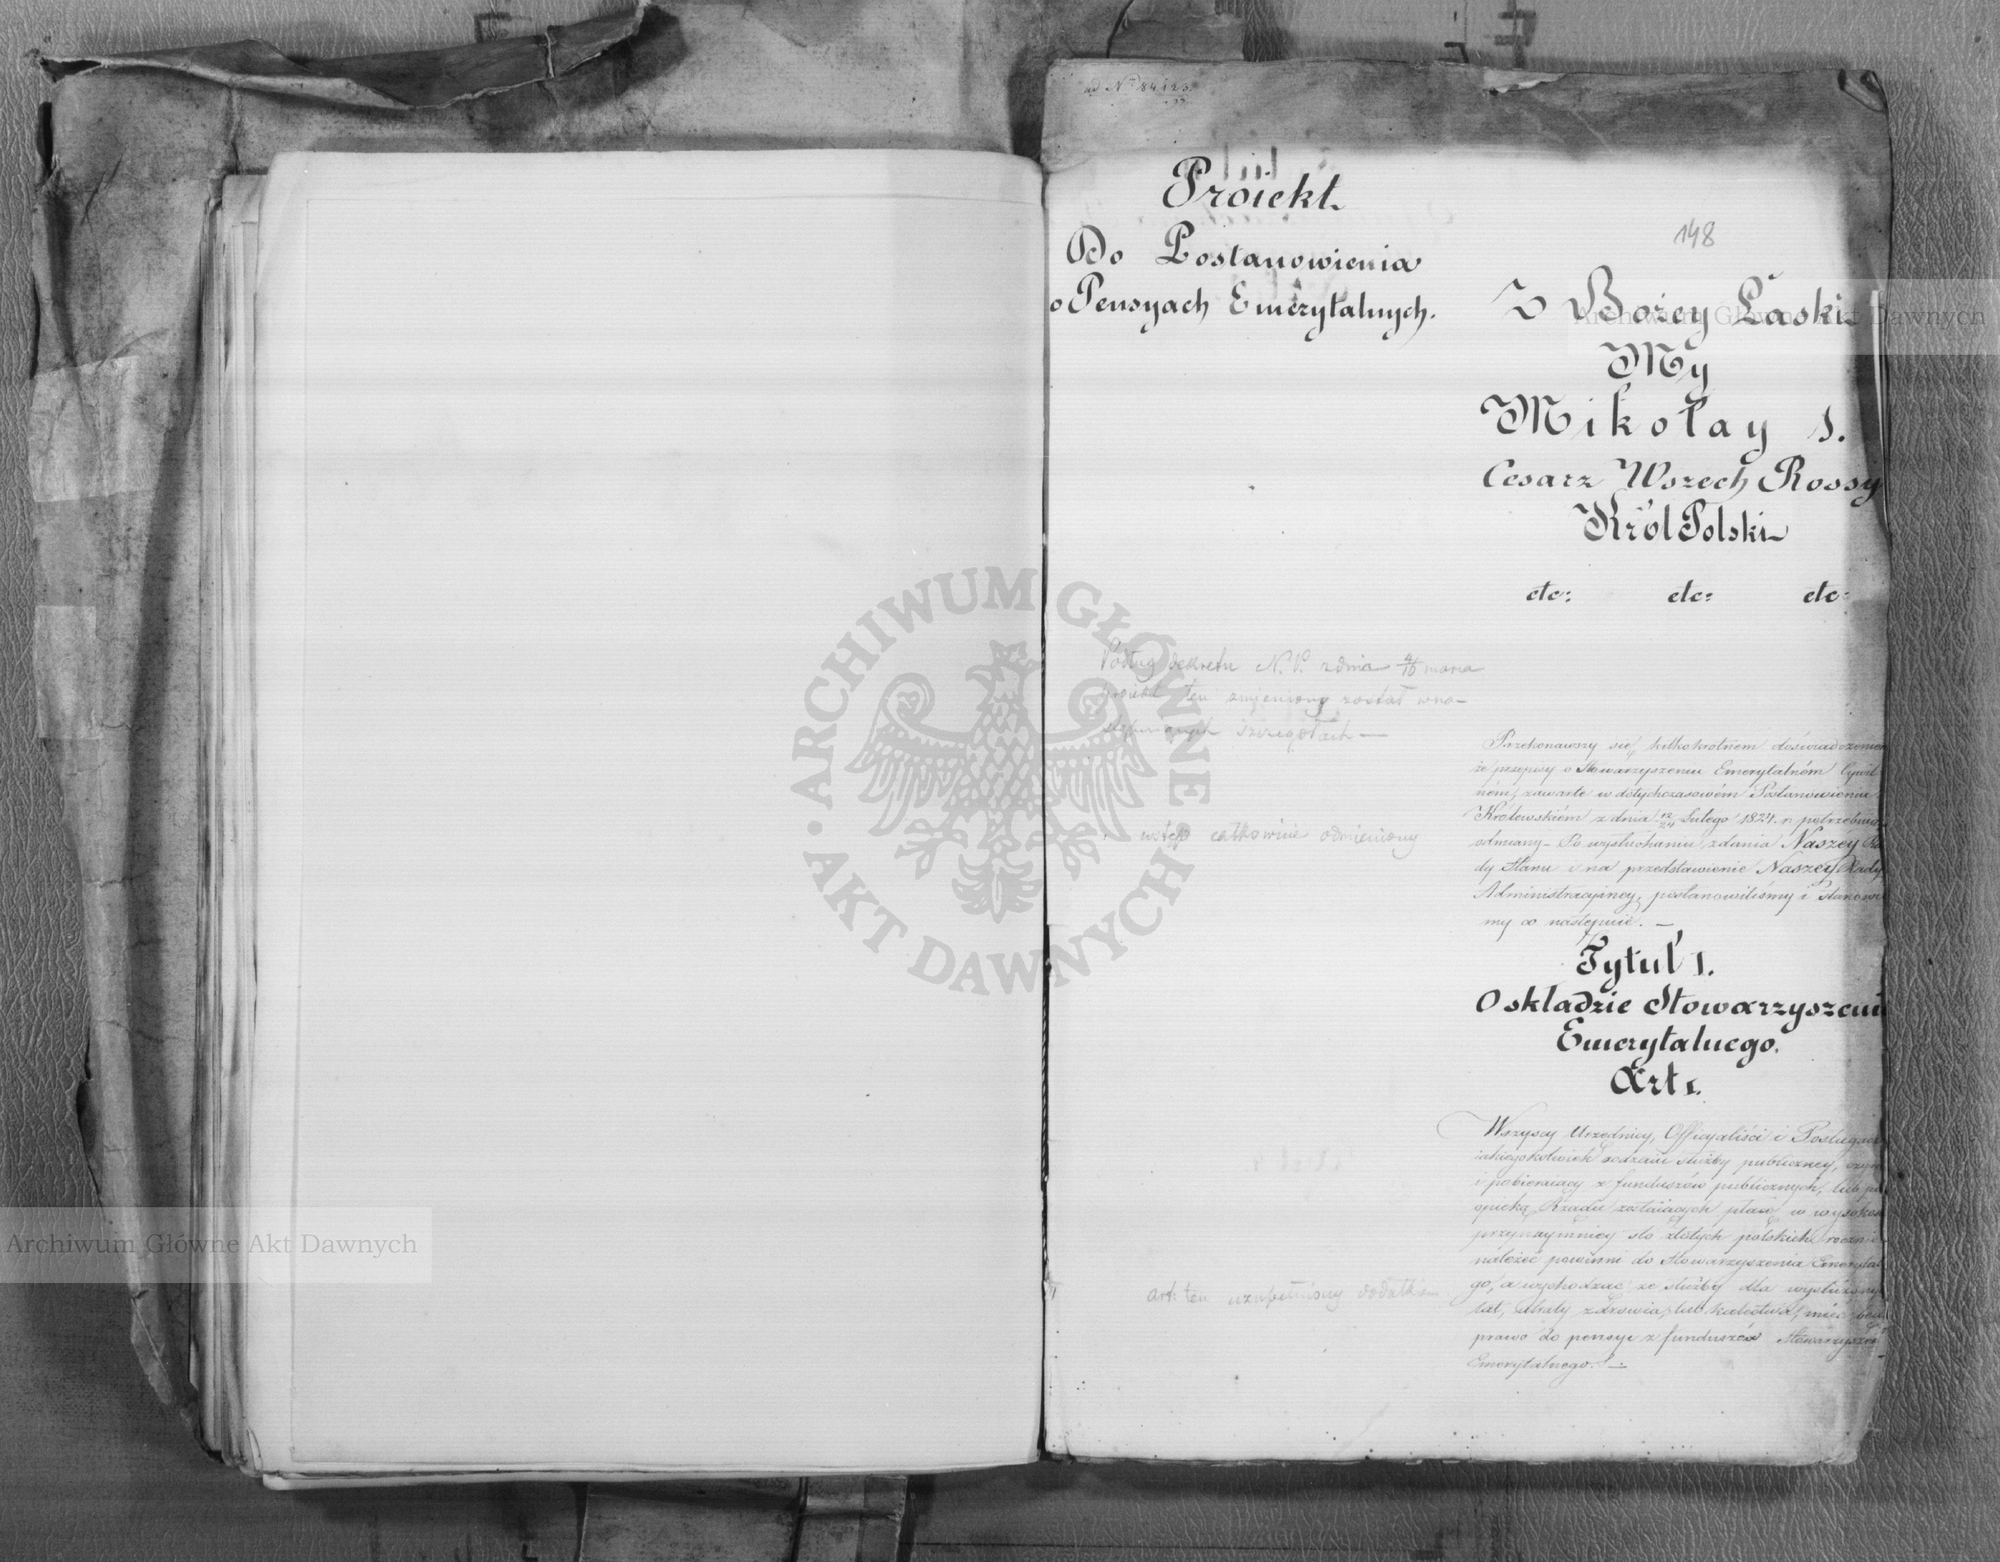 ad N. 84123.
Proiekt
Do Postanowienia
o Pensyach Emerytalnych.
148
Z Bożey Łaski
My
Mikołay I.
Cesarz Wszech Rossy
Król Polski
etc: etc: etc:
Podług dekretu N. P. z dnia 4/16 marca
proiekt ten zmieniony został w na-
stępuiących szczegółach —
Przekonawszy się kilkokrotném doświadczeniem
że przepisy o Stowarzyszeniu Emerytalném Cywil
ném, zawarte w dotychczasowém Postanowieniu
Królewskiém z dnia 12/24 Lutego 1824 r. potrzebuią
odmiany – Po wysłuchaniu zdania Naszey Ra
dy Stanu i na przedstawienie Naszey Rady
Administracyiney, postanowiliśmy i Stanowi
my co następuie. —
wstęp całkowicie odmieniony
Tytuł I.
O składzie Stowarzyszenia
Emerytalnego.
Art 1.
Wszyscy Urzędnicy, Officyaliści i Posługacze
iakiegokolwiek rodzaiu służby publiczney,
i pobieraiący z funduszów publicznych, lub pod
opieką Rządu zostaiących płacę w wysokości
przynaymniey sto złotych polskich rocznie
należeć powinni do Stowarzyszenia Emerytalne
go, a wychodząc ze służby dla wysłużonych
lat, utraty zdrowia, lub kalectwa, mieć będą
prawo do pensyi z funduszów Stowarzyszenia
Emerytalnego. —
art: ten uzupełniony dodatkiem
ARCHIWUM GŁÓWNE
AKT DAWNYCH
Archiwum Główne Akt Dawnych
Archiwum Główne Akt Dawnych